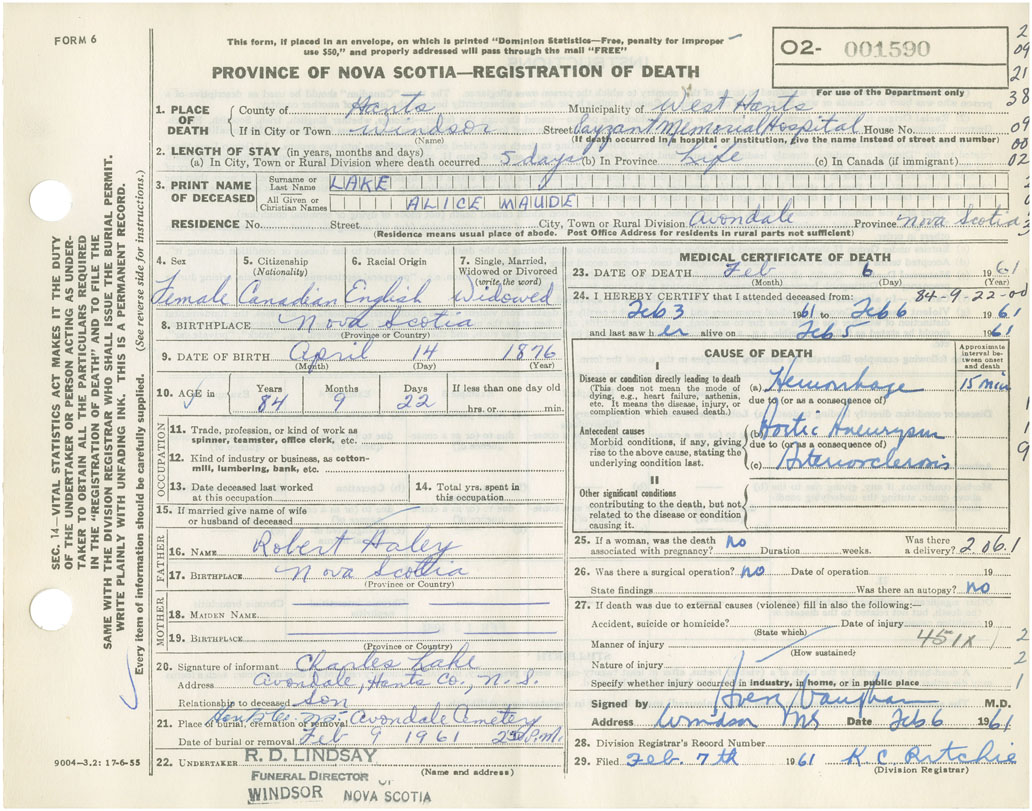 FORM 6
This form, if placed in an envelope, on which is printed "Dominion Statistics—Free, penalty for improper
use $50," and properly addressed will pass through the mail "FREE"
PROVINCE OF NOVA SCOTIA—REGISTRATION OF DEATH
O2- 001590
For use of the Department only
2
09
21
38
09
00
02
SEC. 14—VITAL STATISTICS ACT MAKES IT THE DUTY
OF THE UNDERTAKER OR PERSON ACTING AS UNDER-
TAKER TO OBTAIN ALL THE PARTICULARS REQUIRED
IN THE "REGISTRATION OF DEATH" AND TO FILE THE
SAME WITH THE DIVISION REGISTRAR WHO SHALL ISSUE THE BURIAL PERMIT.
WRITE PLAINLY WITH UNFADING INK. THIS IS A PERMANENT RECORD.
Every item of information should be carefully supplied. (See reverse side for instructions.)
1. PLACE OF DEATH
County of Hants Municipality of West Hants
If in City or Town Windsor Street Payzant Memorial Hospital House No.
(Name) (If death occurred in a hospital or institution, give the name instead of street and number)
2. LENGTH OF STAY (in years, months and days)
(a) In City, Town or Rural Division where death occurred 5 days (b) In Province Life (c) In Canada (if immigrant)
3. PRINT NAME OF DECEASED
Surname or Last Name LAKE
All Given or Christian Names ALICE MAUDE
RESIDENCE No. Street City, Town or Rural Division Avondale Province Nova Scotia
(Residence means usual place of abode. Post Office Address for residents in rural parts not sufficient)
3
4. Sex
Female
5. Citizenship (Nationality)
Canadian
6. Racial Origin
English
7. Single, Married, Widowed or Divorced (write the word)
Widowed
8. BIRTHPLACE Nova Scotia
(Province or Country)
9. DATE OF BIRTH April 14 1876
(Month) (Day) (Year)
10. AGE in Years Months Days If less than one day old
84 9 22 hrs. or min.
OCCUPATION
11. Trade, profession, or kind of work as
spinner, teamster, office clerk, etc.
12. Kind of industry or business, as cotton-
mill, lumbering, bank, etc.
13. Date deceased last worked
at this occupation
14. Total yrs. spent in
this occupation
15. If married give name of wife
or husband of deceased
FATHER
16. NAME Robert Haley
17. BIRTHPLACE Nova Scotia
(Province or Country)
MOTHER
18. MAIDEN NAME
19. BIRTHPLACE
(Province or Country)
20. Signature of informant Charles Lake
Address Avondale, Hants Co., N. S.
Relationship to deceased Son
Hants Co. N.S.
21. Place of burial, cremation or removal Avondale Cemetery
Date of burial or removal Feb 9 1961 P.M.
22. UNDERTAKER R. D. LINDSAY
(Name and address)
FUNERAL DIRECTOR
OF
WINDSOR NOVA SCOTIA
9004-3.2: 17-6-55
MEDICAL CERTIFICATE OF DEATH
23. DATE OF DEATH Feb 6 1961
(Month) (Day) (Year)
24. I HEREBY CERTIFY that I attended deceased from: 84-9-22-00
Feb 3 1961 to Feb 6 1961
and last saw her alive on Feb 5 1961
CAUSE OF DEATH
Approximate interval between onset and death
I
Disease or condition directly leading to death
(This does not mean the mode of
dying, e.g., heart failure, asthenia,
etc. It means the disease, injury, or
complication which caused death.)
(a) Hemorrhage 15 min
due to (or as a consequence of)
Antecedent causes
Morbid conditions, if any, giving
rise to the above cause, stating the
underlying condition last.
(b) Aortic Aneurysm
due to (or as a consequence of)
(c) Arteriosclerosis
1
1
9
II
Other significant conditions
contributing to the death, but not
related to the disease or condition
causing it.
25. If a woman, was the death
associated with pregnancy? No Duration weeks. Was there
a delivery? 2 06.1
26. Was there a surgical operation? no Date of operation 19
State findings Was there an autopsy? no
27. If death was due to external causes (violence) fill in also the following:—
Accident, suicide or homicide? Date of injury 19
(State which)
Manner of injury 451X
(How sustained)
Nature of injury
2
2
1
Specify whether injury occurred in industry, in home, or in public place
Signed by Vaughan M.D.
Address Windsor NS Date Feb 6 1961
28. Division Registrar's Record Number
29. Filed Feb. 7th 1961 K C Ritchie
(Division Registrar)